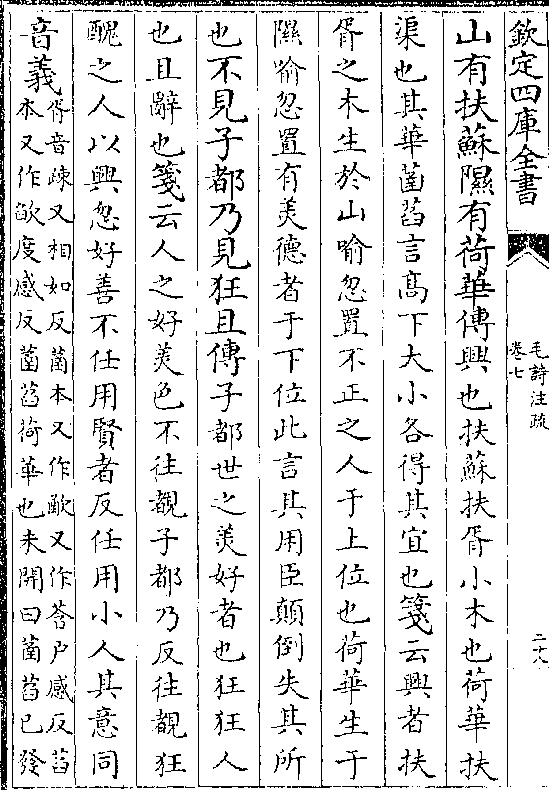 欽定四庫全書
毛詩注疏
卷七
二十八
山有扶蘇隰有荷華傳興也扶蘇扶胥小木也荷華扶
渠也其華菡萏言高下大小各得其宜也箋云興者扶
胥之木生於山喻忽置不正之人于上位也荷華生于
隰喻忽置有美德者于下位此言其用臣顛倒失其所
也不見子都乃見狂且傳子都世之美好者也狂狂人
也且辭也箋云人之好美色不往覩子都乃反往覩狂
醜之人以興忽好善不任用賢者反任用小人其意同
音義
胥音疎又相如反菡本又作歃又作莟户感反萏
本又作欿度感反菡萏荷華也未開曰菡萏已發